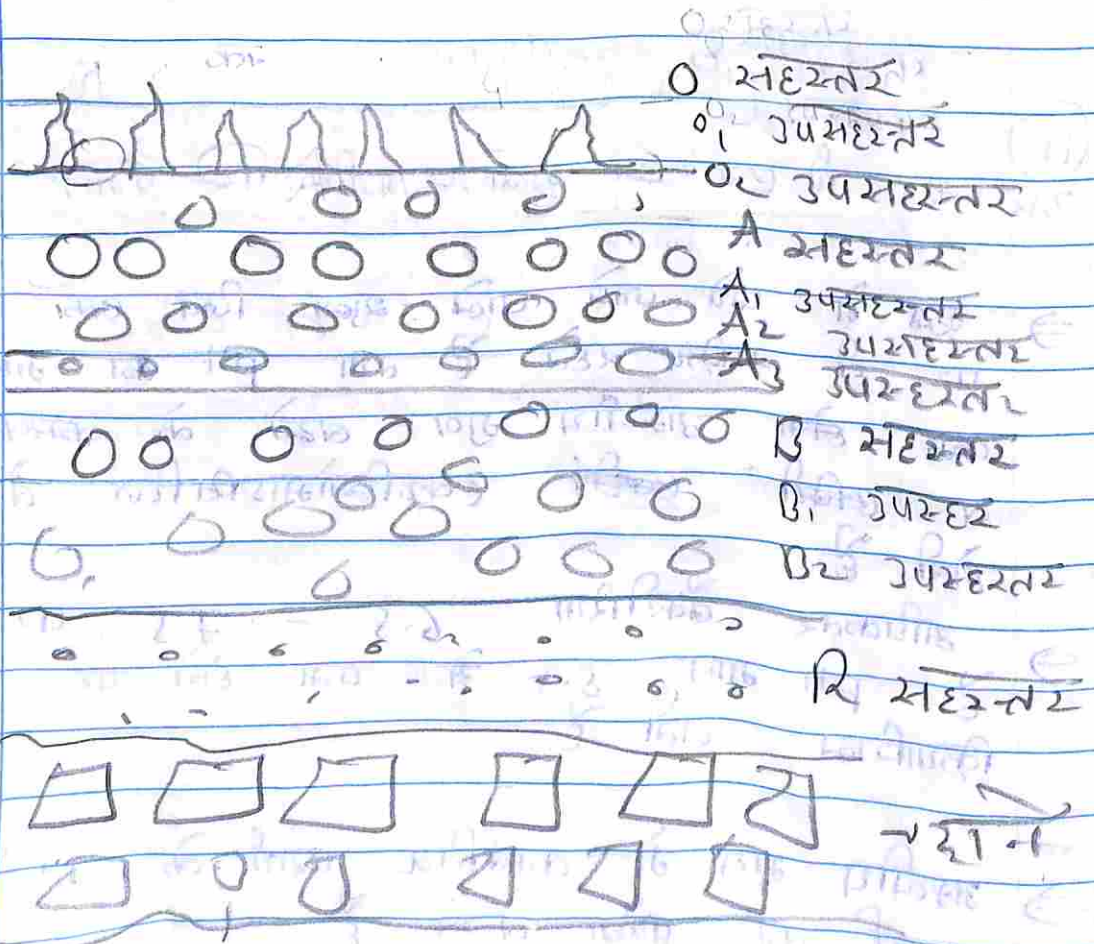 O सहस्तर
O1 उपसहस्तर
O2 उपसहस्तर
A सहस्तर
A1 उपसहस्तर
A2 उपसहस्तर
A3 उपस्हस्तर
B सहस्तर
B1 उपस्हर
B2 उपस्हस्तर
R सहस्तर